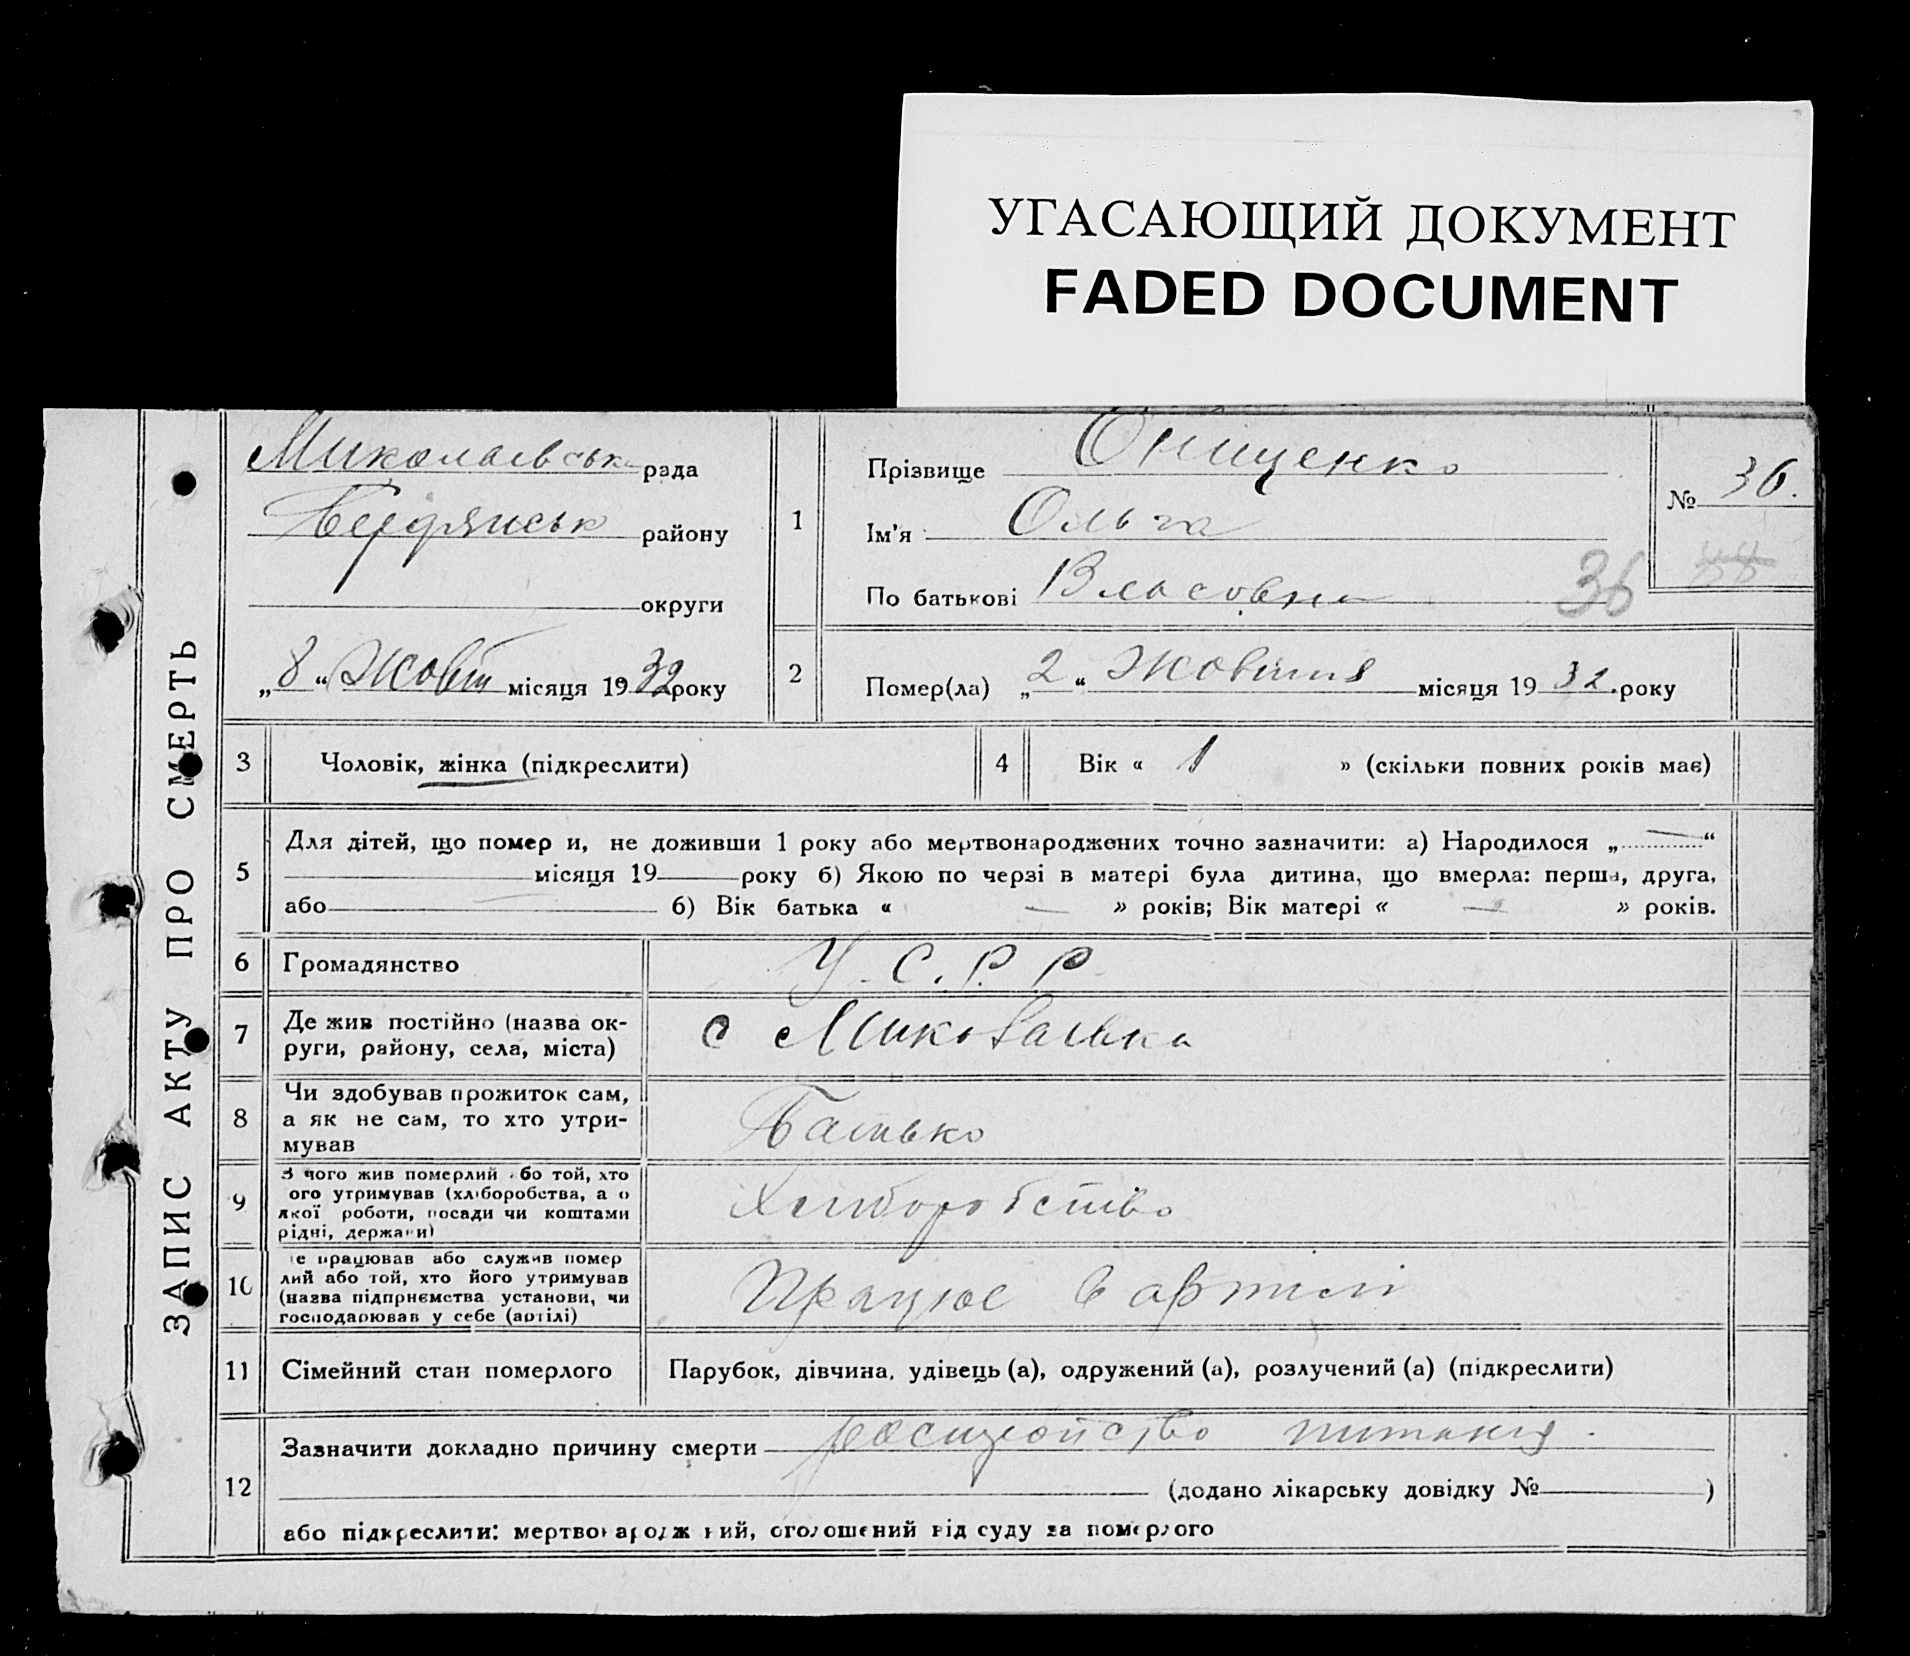 УГАСАЮЩИЙ ДОКУМЕНТ
FADED DOCUMENT
ЗАПИС АКТУ ПРО СМЕРТЬ
Миколаївська рада
Бердянськ району
округи
„8“ Жовт місяця 1932 року
1
Прізвище Онищенко
Ім'я Ольга
По батькові Власовна
№ 36.
36
88
2
Помер(ла) „2“ Жовтня місяця 1932. року
3 Чоловік, жінка (підкреслити)
4 Вік « 1 » (скільки повних років має)
5
Для дітей, що помер и, не доживши 1 року або мертвонароджених точно зазначити: а) Народилося „ — “
місяця 19 року б) Якою по черзі в матері була дитина, що вмерла: перша, друга,
або б) Вік батька « — » років; Вік матері « — » років.
6 Громадянство У.С.Р.Р
7 Де жив постійно (назва ок-
руги, району, села, міста)
с Миколаївка
8 Чи здобував прожиток сам,
а як не сам, то хто утри-
мував
Батько
9 З чого жив померлий бо той, хто
ого утримував (хліборобства, а о
якої роботи, посади чи коштами
рідні, держави)
Хліборобство
10 е працював або служив помер
лий або той, хто його утримував
(назва підприємства установи, чи
господарював у себе (артілі)
Працює в артілі
11 Сімейний стан померлого
Парубок, дівчина, удівець (а), одружений (а), розлучений (а) (підкреслити)
12
Зазначити докладно причину смерти питания.
(додано лікарську довідку № )
або підкреслити: мертвонароджений, оголошений від суду за померлого